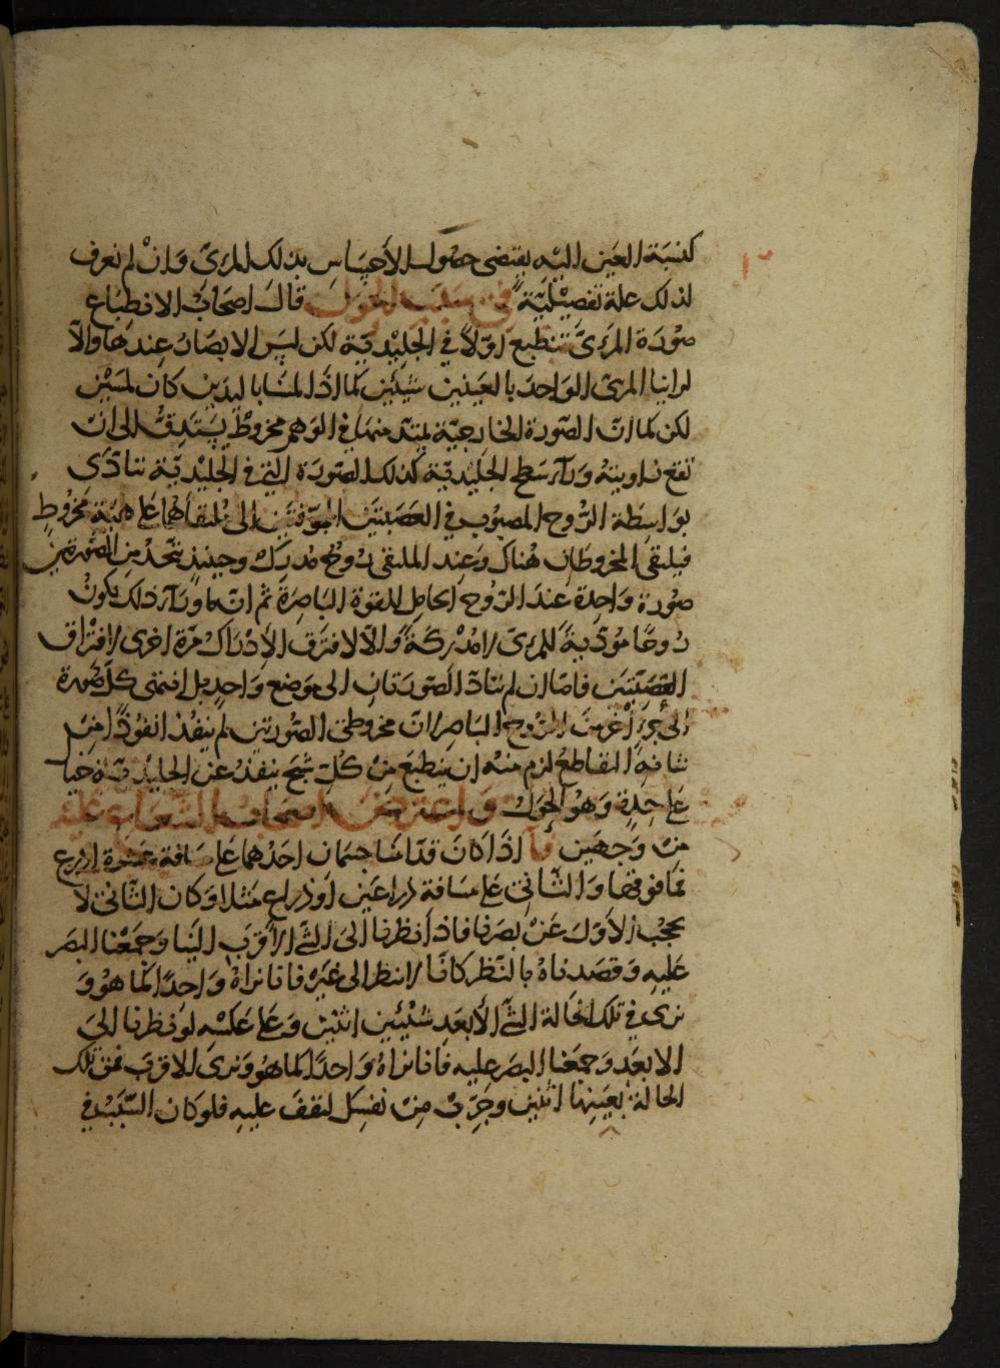 كنسبة العين اليه يقتضى حصول الأحساس بذلك المرئى وان لم نعرف
لذلك علة تفصيلية في سبب الحول قال اصحاب الانطباع
صورة المرئى تنطبع اولا في الجليدية لكن ليس الابصار عندها والا
لراينا المرئ الواحد بالعينين شيئين كما اذا لمسنا باليدين كان لمسين
لكن كما ان الصورة الخارجية يمتد منها في الوهم مخروط يستدق الى ان
تقع زاويته ورآ سطح الجليدية كذلك الصورة التي في الجليدية تتادى
بواسطة الروح المصبوب في العصبتين المجوفتين الى ملتقاهما على هيئة مخروط
فيلتقى المخروطان هناك وعند الملتقى روح مدرك وحينئذ تتحد من الصورتين
صورة واحدة عند الروح الحامل للقوة الباصرة ثم ان ما ورآ ذلك يكون
روحا مودية للمرئ لا مدركة والا لافترق الأدراك مرة اخرى لافتراق
العصبتين فاما ان لم تتاد الصورتان الى موضع واحد بل انتهى كل صورة
الى جزء آخر من الروح الباصر لان مخروطى الصورتين لم ينفذا نفوذا من
شانه التقاطع لزم منه ان ينطبع من كل شبح ينفذ عن الجليدية خيال
على حدة وهو الحول واعترض اصحاب الشعاع عليه
من وجهين آ اذا كان قدامنا جسمان احدهما على مسافة عشرة اذرع
فما فوقها والثانى على مسافة ذراعين او ذراع مثلا وكان الثانى لا
يحجب الاول عن بصرنا فاذا نظرنا الى الشئ الاقرب الينا وجمعنا البصر
عليه وقصدناه بالنظر كانا لا ننظر الى غيره فانا نراه واحدا كما هو و
نرى في تلك الحالة الشئ الأبعد شيئين اثنين وعلى عكسه لو نظرنا الى
الابعد وجمعنا البصر عليه فانا نراه واحدا كما هو ونرى الاقرب في تلك
الحالة بعينها اثنين وجرب من نفسك لتقف عليه فلو كان السبب في